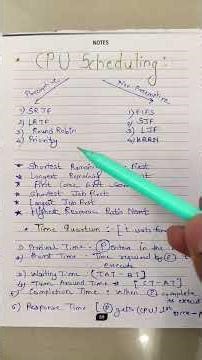 NOTES
CPU Scheduling:
Preemptive
Non-Preemptive
1) SRTF
2) LRTF
3) Round Robin
4) Priority
1) FCFS
2) SJF
3) LJF
4) HRRN
* Shortest Remaining First
* Longest Remaining
* First Come First Serve
* Shortest Job First
* Longest Job First
* Highest Response Ratio Next
* Time Quantum: [
1) Arrival Time: (P) enters in the
2) Burst Time: Time required by (P)
execute
3) Waiting Time: [TAT - BT]
4) Turn Around Time: [CT - AT]
5) Completion Time: when (P) complete
6) Response Time [(P) gets (CPU)